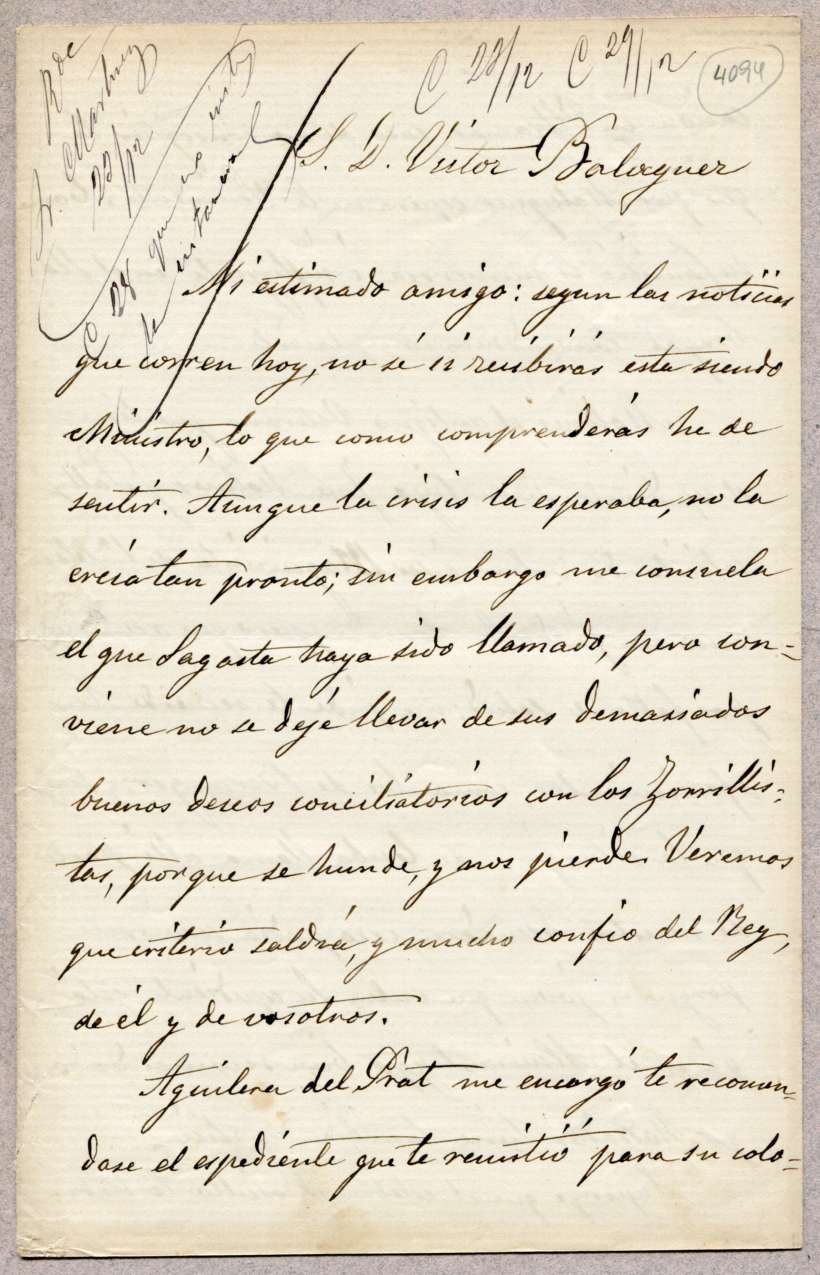 Rde
Sr. Martinez
22/12
C 28 que no insta
la instancia
C 23/12 C 29/12
4094
S. D. Victor Balaguer
Mi estimado amigo: segun las noticias
que corren hoy, no sé si recibirás esta siendo
Ministro, lo que como comprenderás he de
sentir. Aunque la crisis la esperaba, no la
creia tan pronto; sin embargo me consuela
el que Sagasta haya sido llamado, pero con=
viene no se dejé llevar de sus demasiados
buenos deseos conciliatorios con los Zorrillis=
tas, porque se hunde, y nos pierde. Veremos
que criterio saldrá, y mucho confio del Rey,
de él y de vosotros.
Aguilera del Prat me encargó te recomen=
dase el espediente que te remitió para su colo=